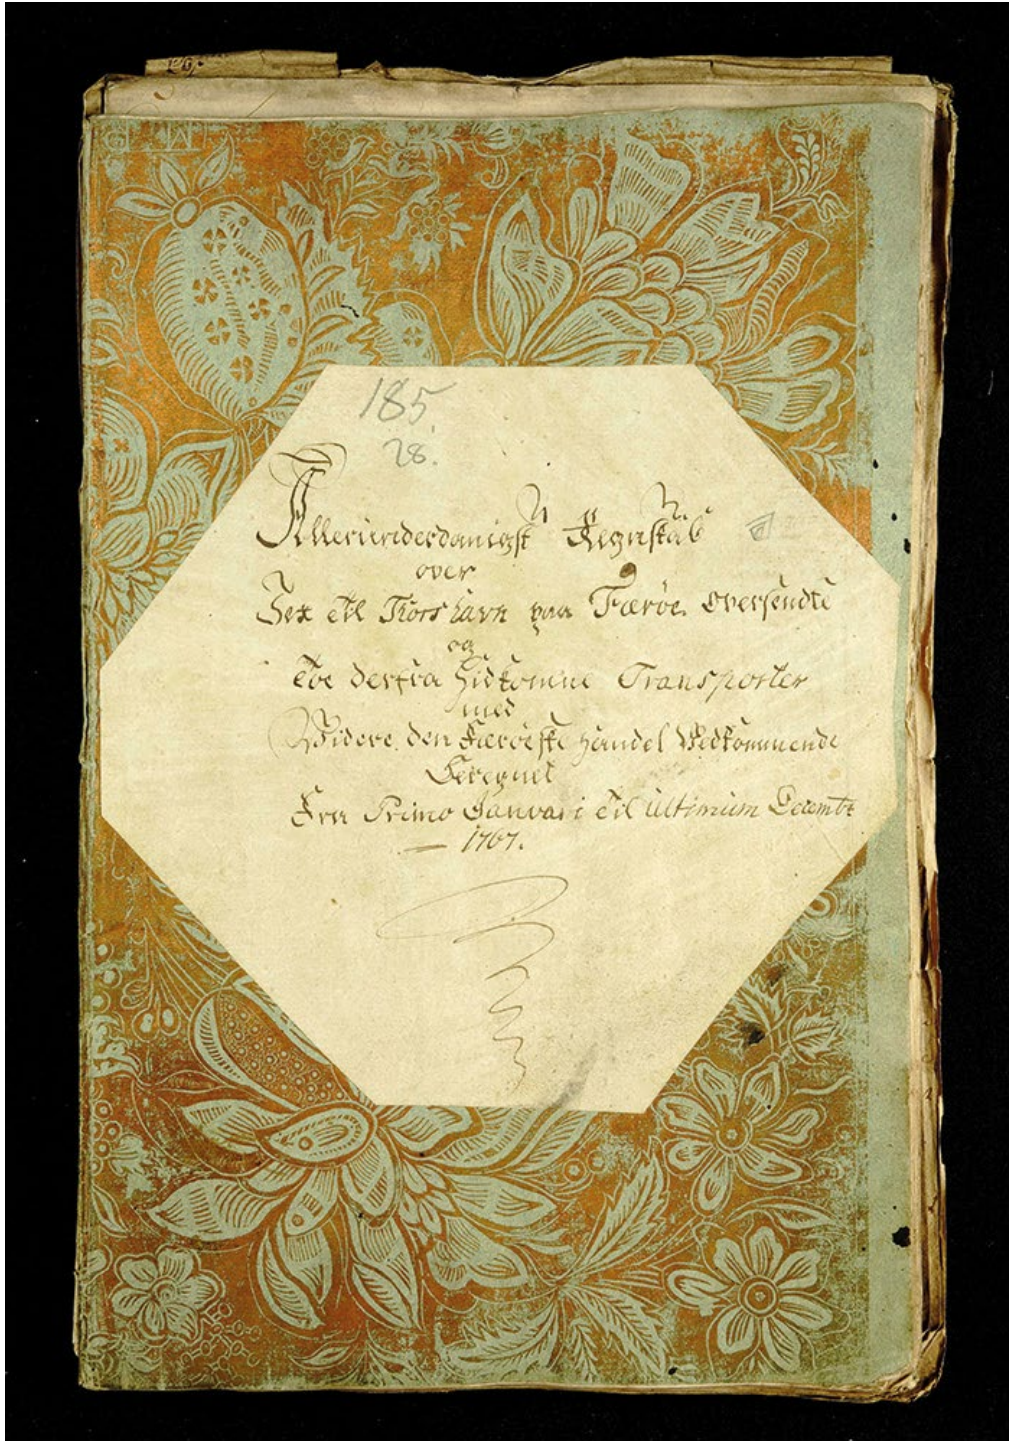 185.
28.
Allerunderdanigst Regnskab
over
Sex til Thorshavn paa Færöe oversendte
og
toe derfra hidkomne Transporter
med
Widere den Færöeske Handel Vedkommende
Beregnet
Fra Primo Januari til ultimum Decembr
1767.